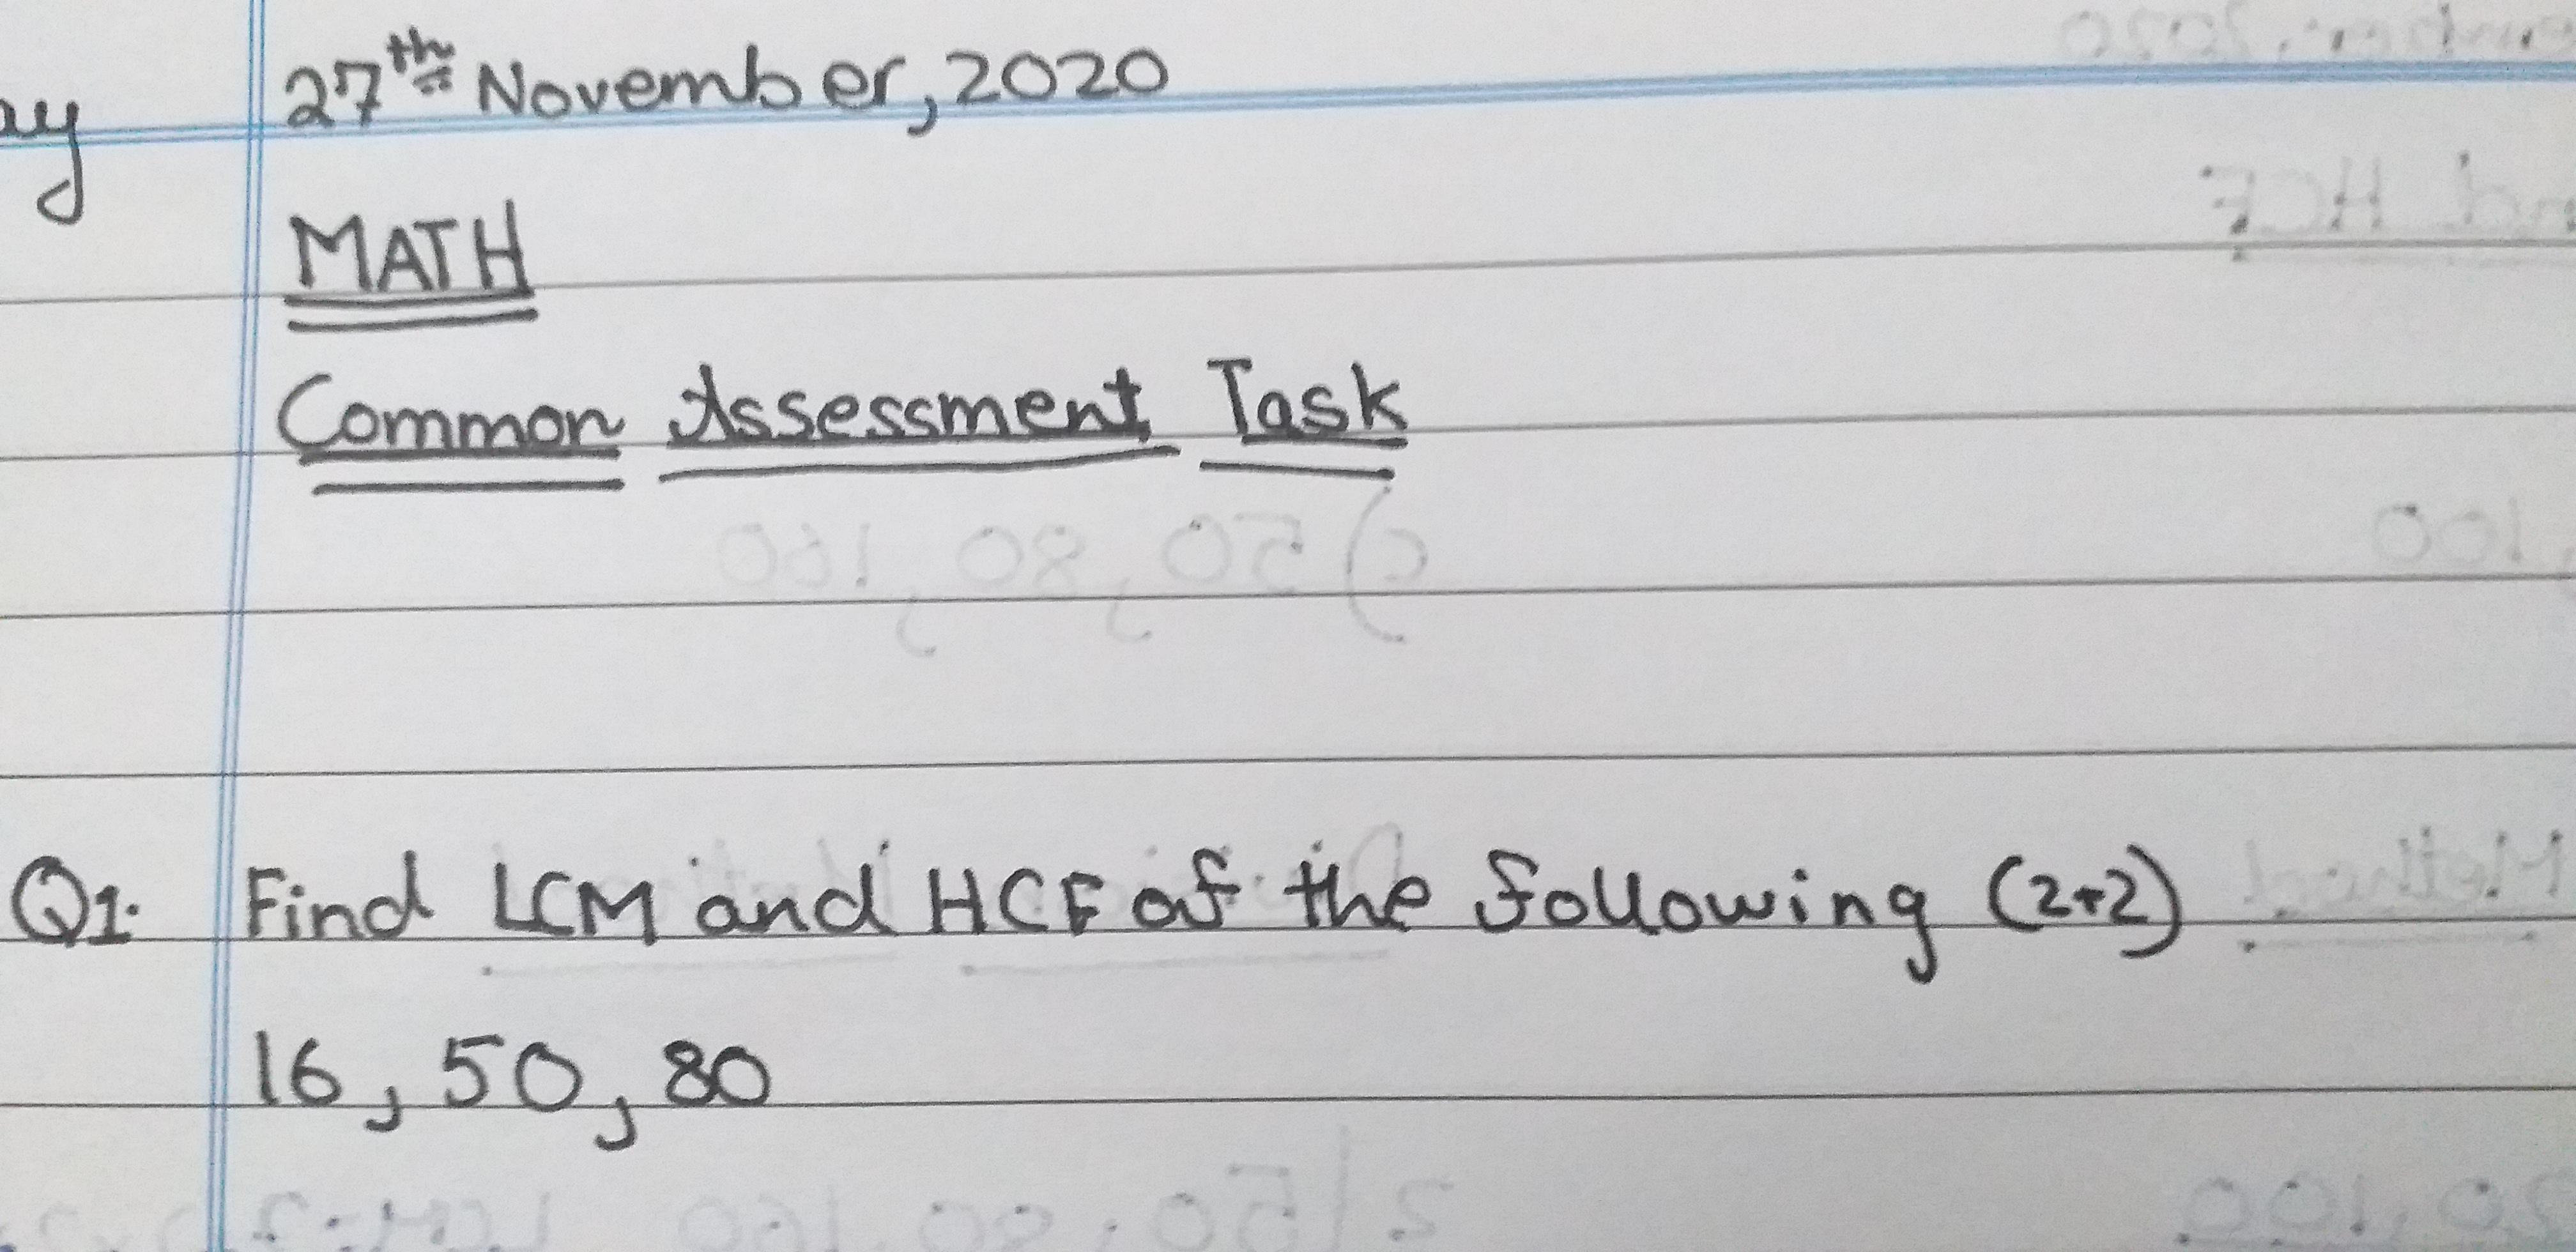 ay
27th November, 2020
MATH
Common Assessment Task
Q1. Find LCM and HCF of the following (2+2)
16, 50, 80